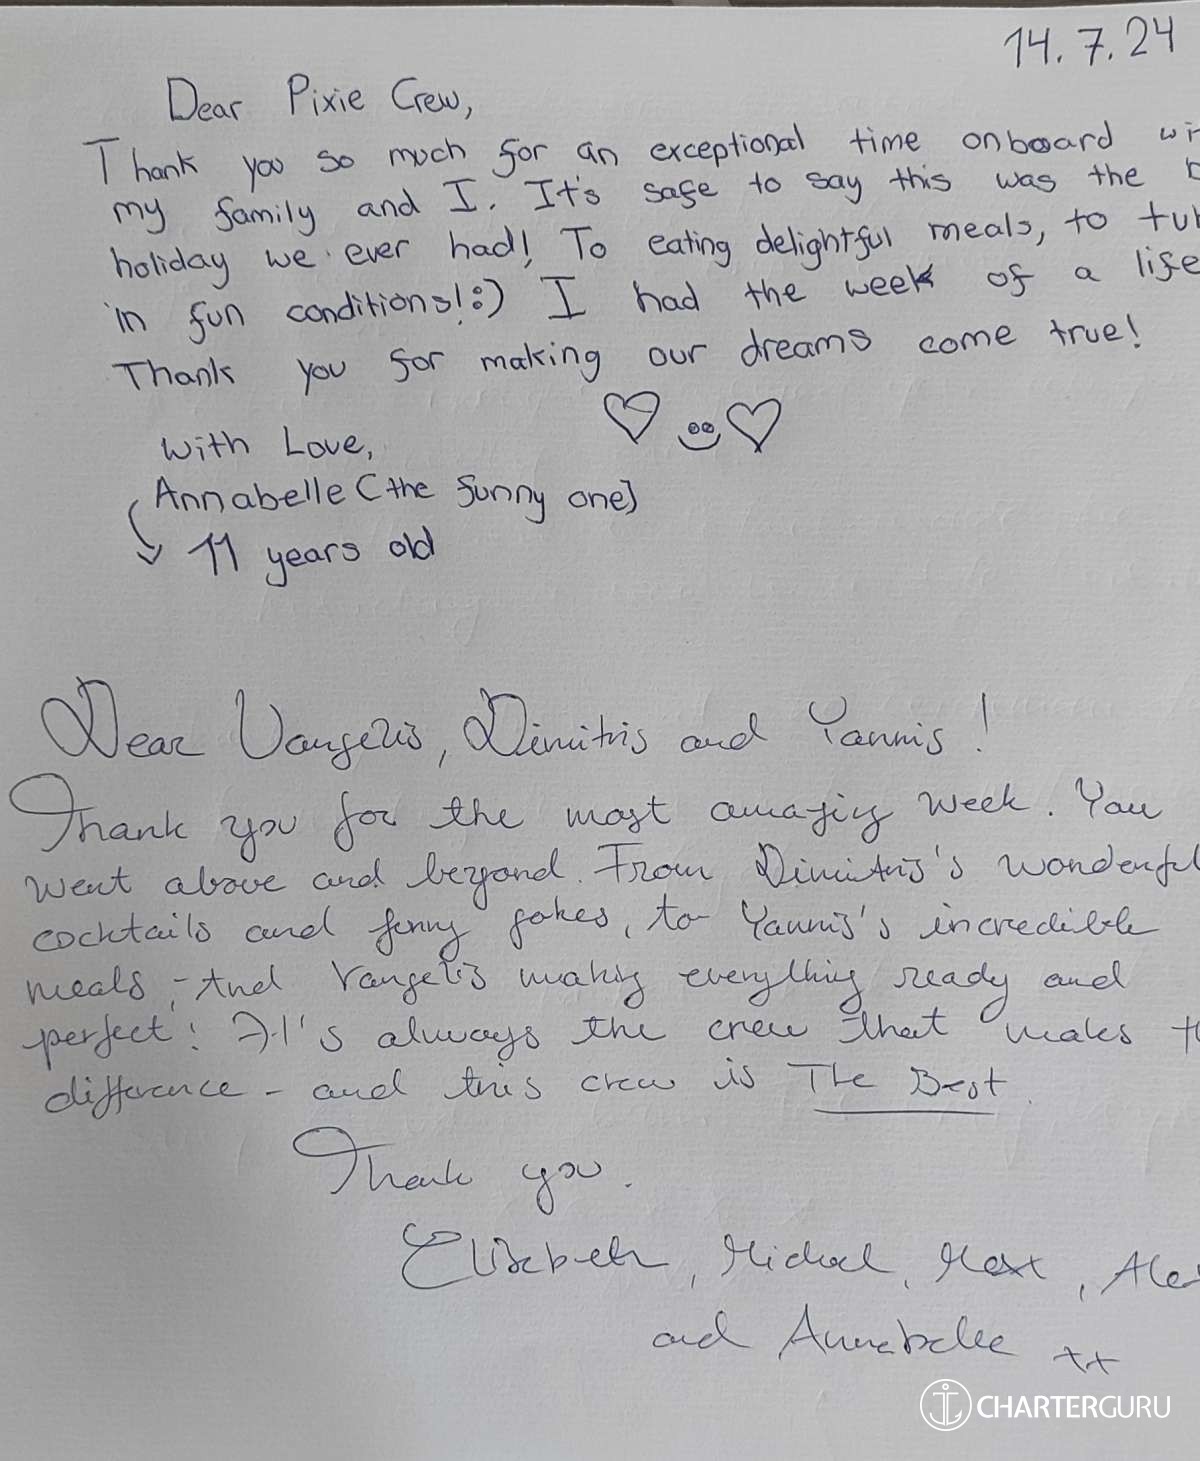 14.7.24
Dear Pixie Crew,
Thank you so much for an exceptional time onboard wi
my family and I. It's safe to say this was the b
holiday we ever had! To eating delightful meals, to tu
in fun conditions! :) I had the week of a life
Thank you for making our dreams come true!
with Love,
Annabelle (the funny one)
11 years old
Dear Vangelis, Dimitris and Yannis!
Thank you for the most amazing week. You
went above and beyond. From Dimitris's wonderful
cocktails and funny jokes, to Yannis's incredible
meals, - And Vangelis making everything ready and
perfect! It's always the crew that makes th
difference - and this crew is The Best.
Thank you.
Elisabeth, Michael, Max, Alex
and Annabelle xx
CHARTERGURU